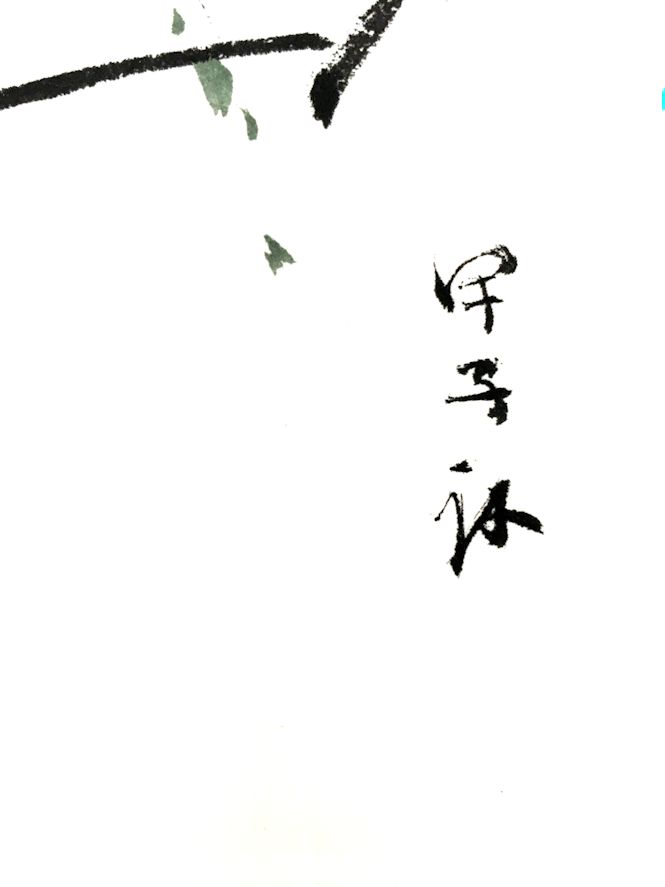 甲子秋